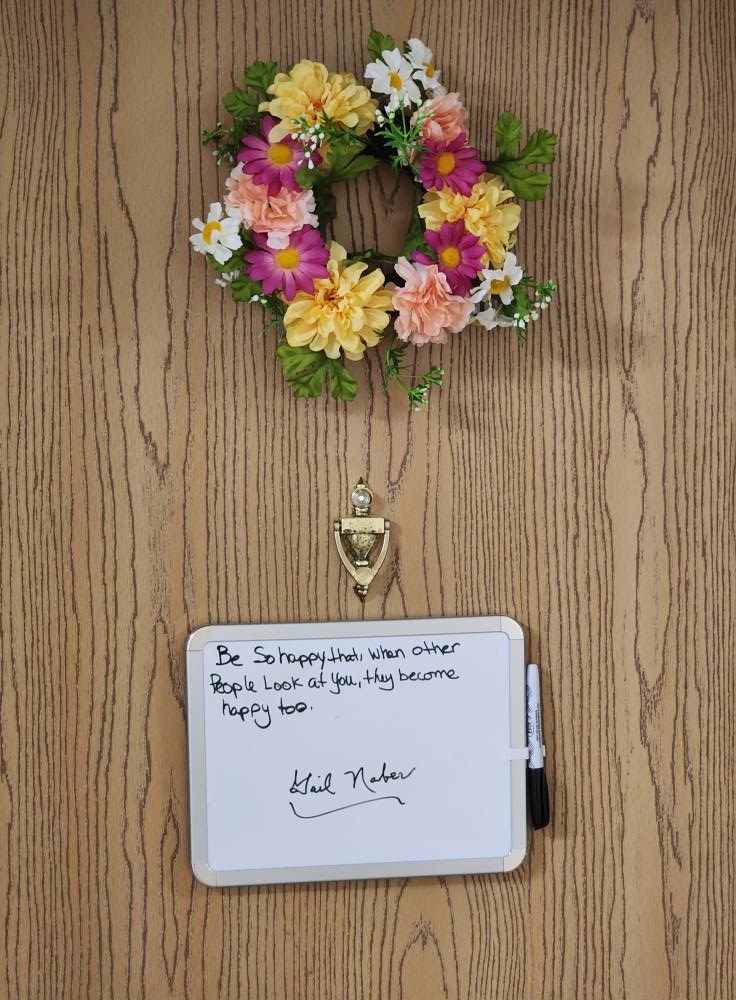 Be So happy that, when other
People Look at you, they become
happy too.
Gail Naber